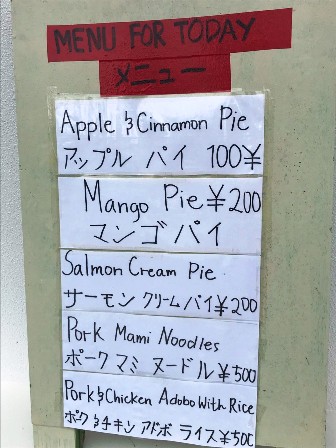 MENU FOR TODAY
メニュー
Apple & Cinnamon Pie
アップル パイ 100¥
Mango Pie ¥200
マンゴパイ
Salmon Cream Pie
サーモン クリームパイ¥200
Pork Mami Noodles
ポーク マミ ヌードル ¥500
Pork & Chicken Adobo With Rice
ポーク & チキン アドボ ライス ¥500